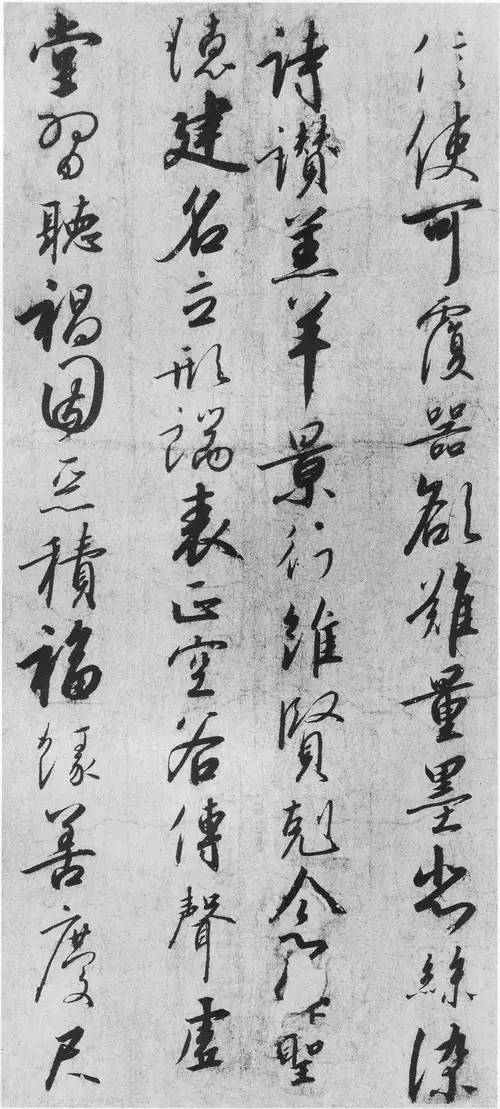 信使可覆器欲難量墨悲絲染
詩讚羔羊景行維賢剋念作聖
德建名立形端表正空谷傳聲虛
堂習聽禍因惡積福緣善慶尺